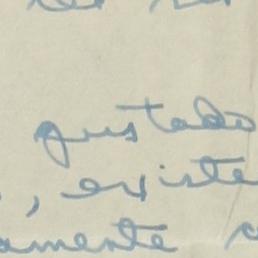 gustado
, existe
amente